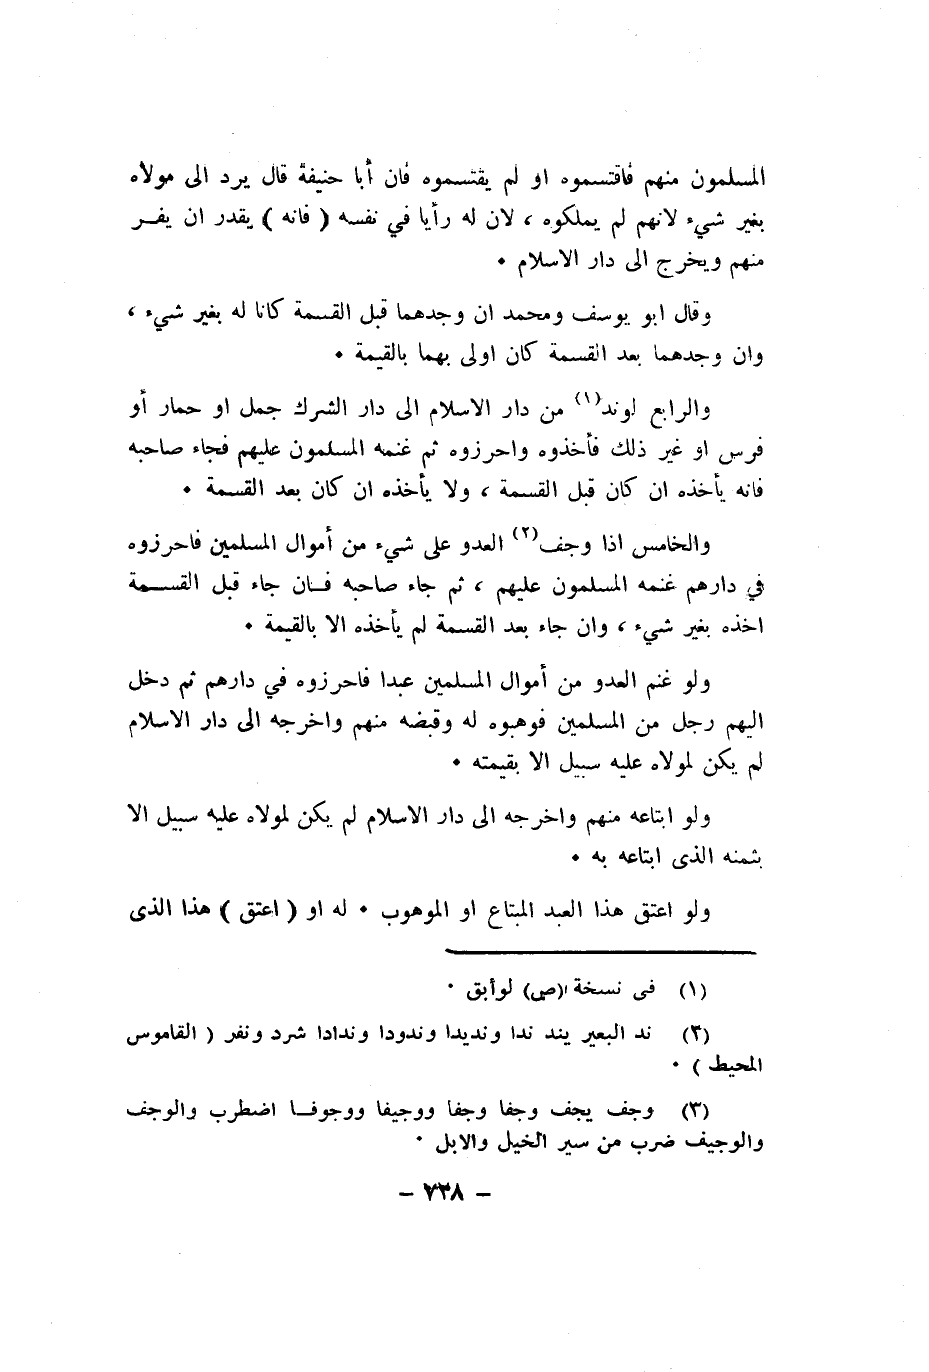 المسلمون منهم فاقتسموه او لم يقتسموه فان أبا حنيفة قال يرد الى مولاه
بغير شيء لانهم لم يملكوه ، لان له رأيا في نفسه ( فانه ) يقدر ان يفـر
منهم ويخرج الى دار الاسلام ٠
وقال ابو يوسف ومحمد ان وجدهما قبل القسمة كانا له بغير شيء ،
وان وجدهما بعد القسمة كان اولى بهما بالقيمة ٠
والرابع لوند(١) من دار الاسلام الى دار الشرك جمل او حمار أو
فرس او غير ذلك فأخذوه واحرزوه ثم غنمه المسلمون عليهم فجاء صاحبه
فانه يأخذه ان كان قبل القسمة ، ولا يأخذه ان كان بعد القسمة ٠
والخامس اذا وجف(٢) العدو على شيء من أموال المسلمين فاحرزوه
في دارهم غنمه المسلمون عليهم ، ثم جاء صاحبه فــان جاء قبل القســـمة
اخذه بغير شيء ، وان جاء بعد القسمة لم يأخذه الا بالقيمة ٠
ولو غنم العدو من أموال المسلمين عبدا فاحرزوه في دارهم ثم دخل
اليهم رجل من المسلمين فوهبوه له وقبضه منهم واخرجه الى دار الاسلام
لم يكن لمولاه عليه سبيل الا بقيمته ٠
ولو ابتاعه منهم واخرجه الى دار الاسلام لم يكن لمولاه عليه سبيل الا
بثمنه الذى ابتاعه به ٠
ولو اعتق هذا العبد المبتاع او الموهوب ٠ له او ( اعتق ) هذا الذى
(١) فى نسخة (ص) لوأبق ٠
(٢) ند البعير يند ندا ونديدا وندودا وندادا شرد ونفر ( القاموس
المحيط ) ٠
(٣) وجف يجف وجفا وجفا ووجيفا ووجوفــا اضطرب والوجف
والوجيف ضرب من سير الخيل والابل ٠
– ٧٣٨ –